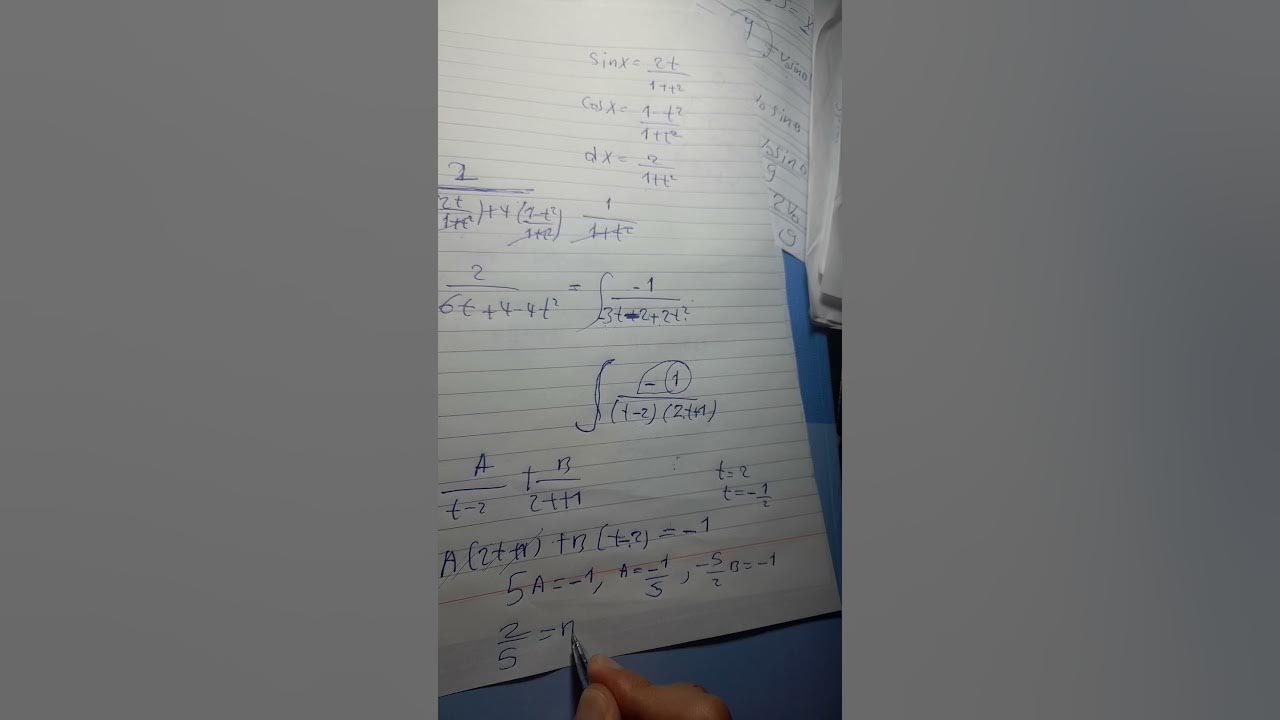 sinx = 2t/1+t²
cosx = 1-t²/1+t²
dx = 2/1+t²
2/(2t/1+t²)+4(1-t²/1+t²) 1/1+t²
2/6t+4-4t² = ∫ -1/-3t-2+2t²
∫ -1/(t-2)(2t+1)
A/t-2 + B/2t+1
t=2
t=-1/2
A(2t+1)+B(t-2)=-1
5A=-1, A=-1/5, -5/2B=-1
2/5=B
sinθ
2V₀